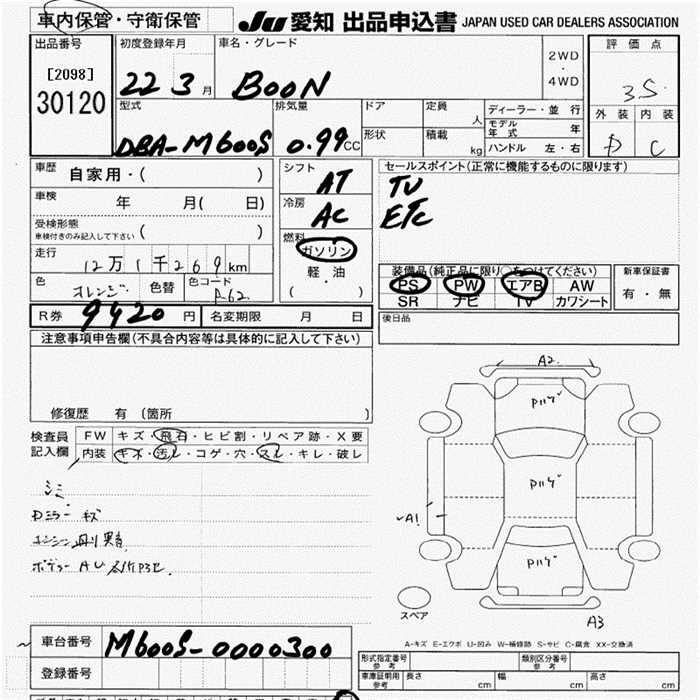 車内保管・守衛保管
JU 愛知 出品申込書 JAPAN USED CAR DEALERS ASSOCIATION
出品番号 初度登録年月 車名・グレード 評価点
[2098]
30120
22 3 月 BOON 2WD・4WD 3.5
型式 排気量 ドア 定員 人 ディーラー・並行 外装 内装
モデル年式 年
DBA-M600S 0.99 CC 形状 積載 kg ハンドル 左・右 D C
車歴 自家用・( ) シフト AT セールスポイント(正常に機能するものに限ります)
車検 年 月( 日) 冷房 AC TV
ETC
受検形態
車検付きのみ記入して下さい ( ) 燃料
ガソリン
走行 12万1千269km 軽・油
・( )
装備品(純正品に限り○をつけてください) 新車保証書
色 オレンジ 色替 色コード R62
PS PW エアB AW 有・無
SR ナビ TV カワシート
R券 9420 円 名変期限 月 日 後日品
注意事項申告欄(不具合内容等は具体的に記入して下さい)
修復歴 有 (箇所 )
検査員 FW キズ・飛石・ヒビ割・リペア跡・X要
記入欄 内装 キズ・汚レ・コゲ・穴・スレ・キレ・破レ
シミ
Dミラー キズ
ボデー AU
A2
Pハゲ
Pハゲ
A1
Pハゲ
スペア
A3
A-キズ E-エクボ U-凹み W-補修跡 S-サビ C-腐食 XX-交換済
車台番号 M600S-0000300
登録番号
形式指定番号 参考 類別区分番号 参考
車庫証明用 参考 長さ cm 幅 cm 高さ cm